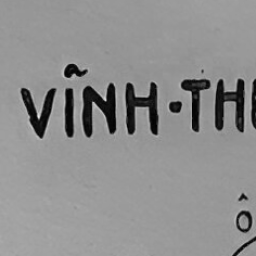 VĨNH·TH
Ô